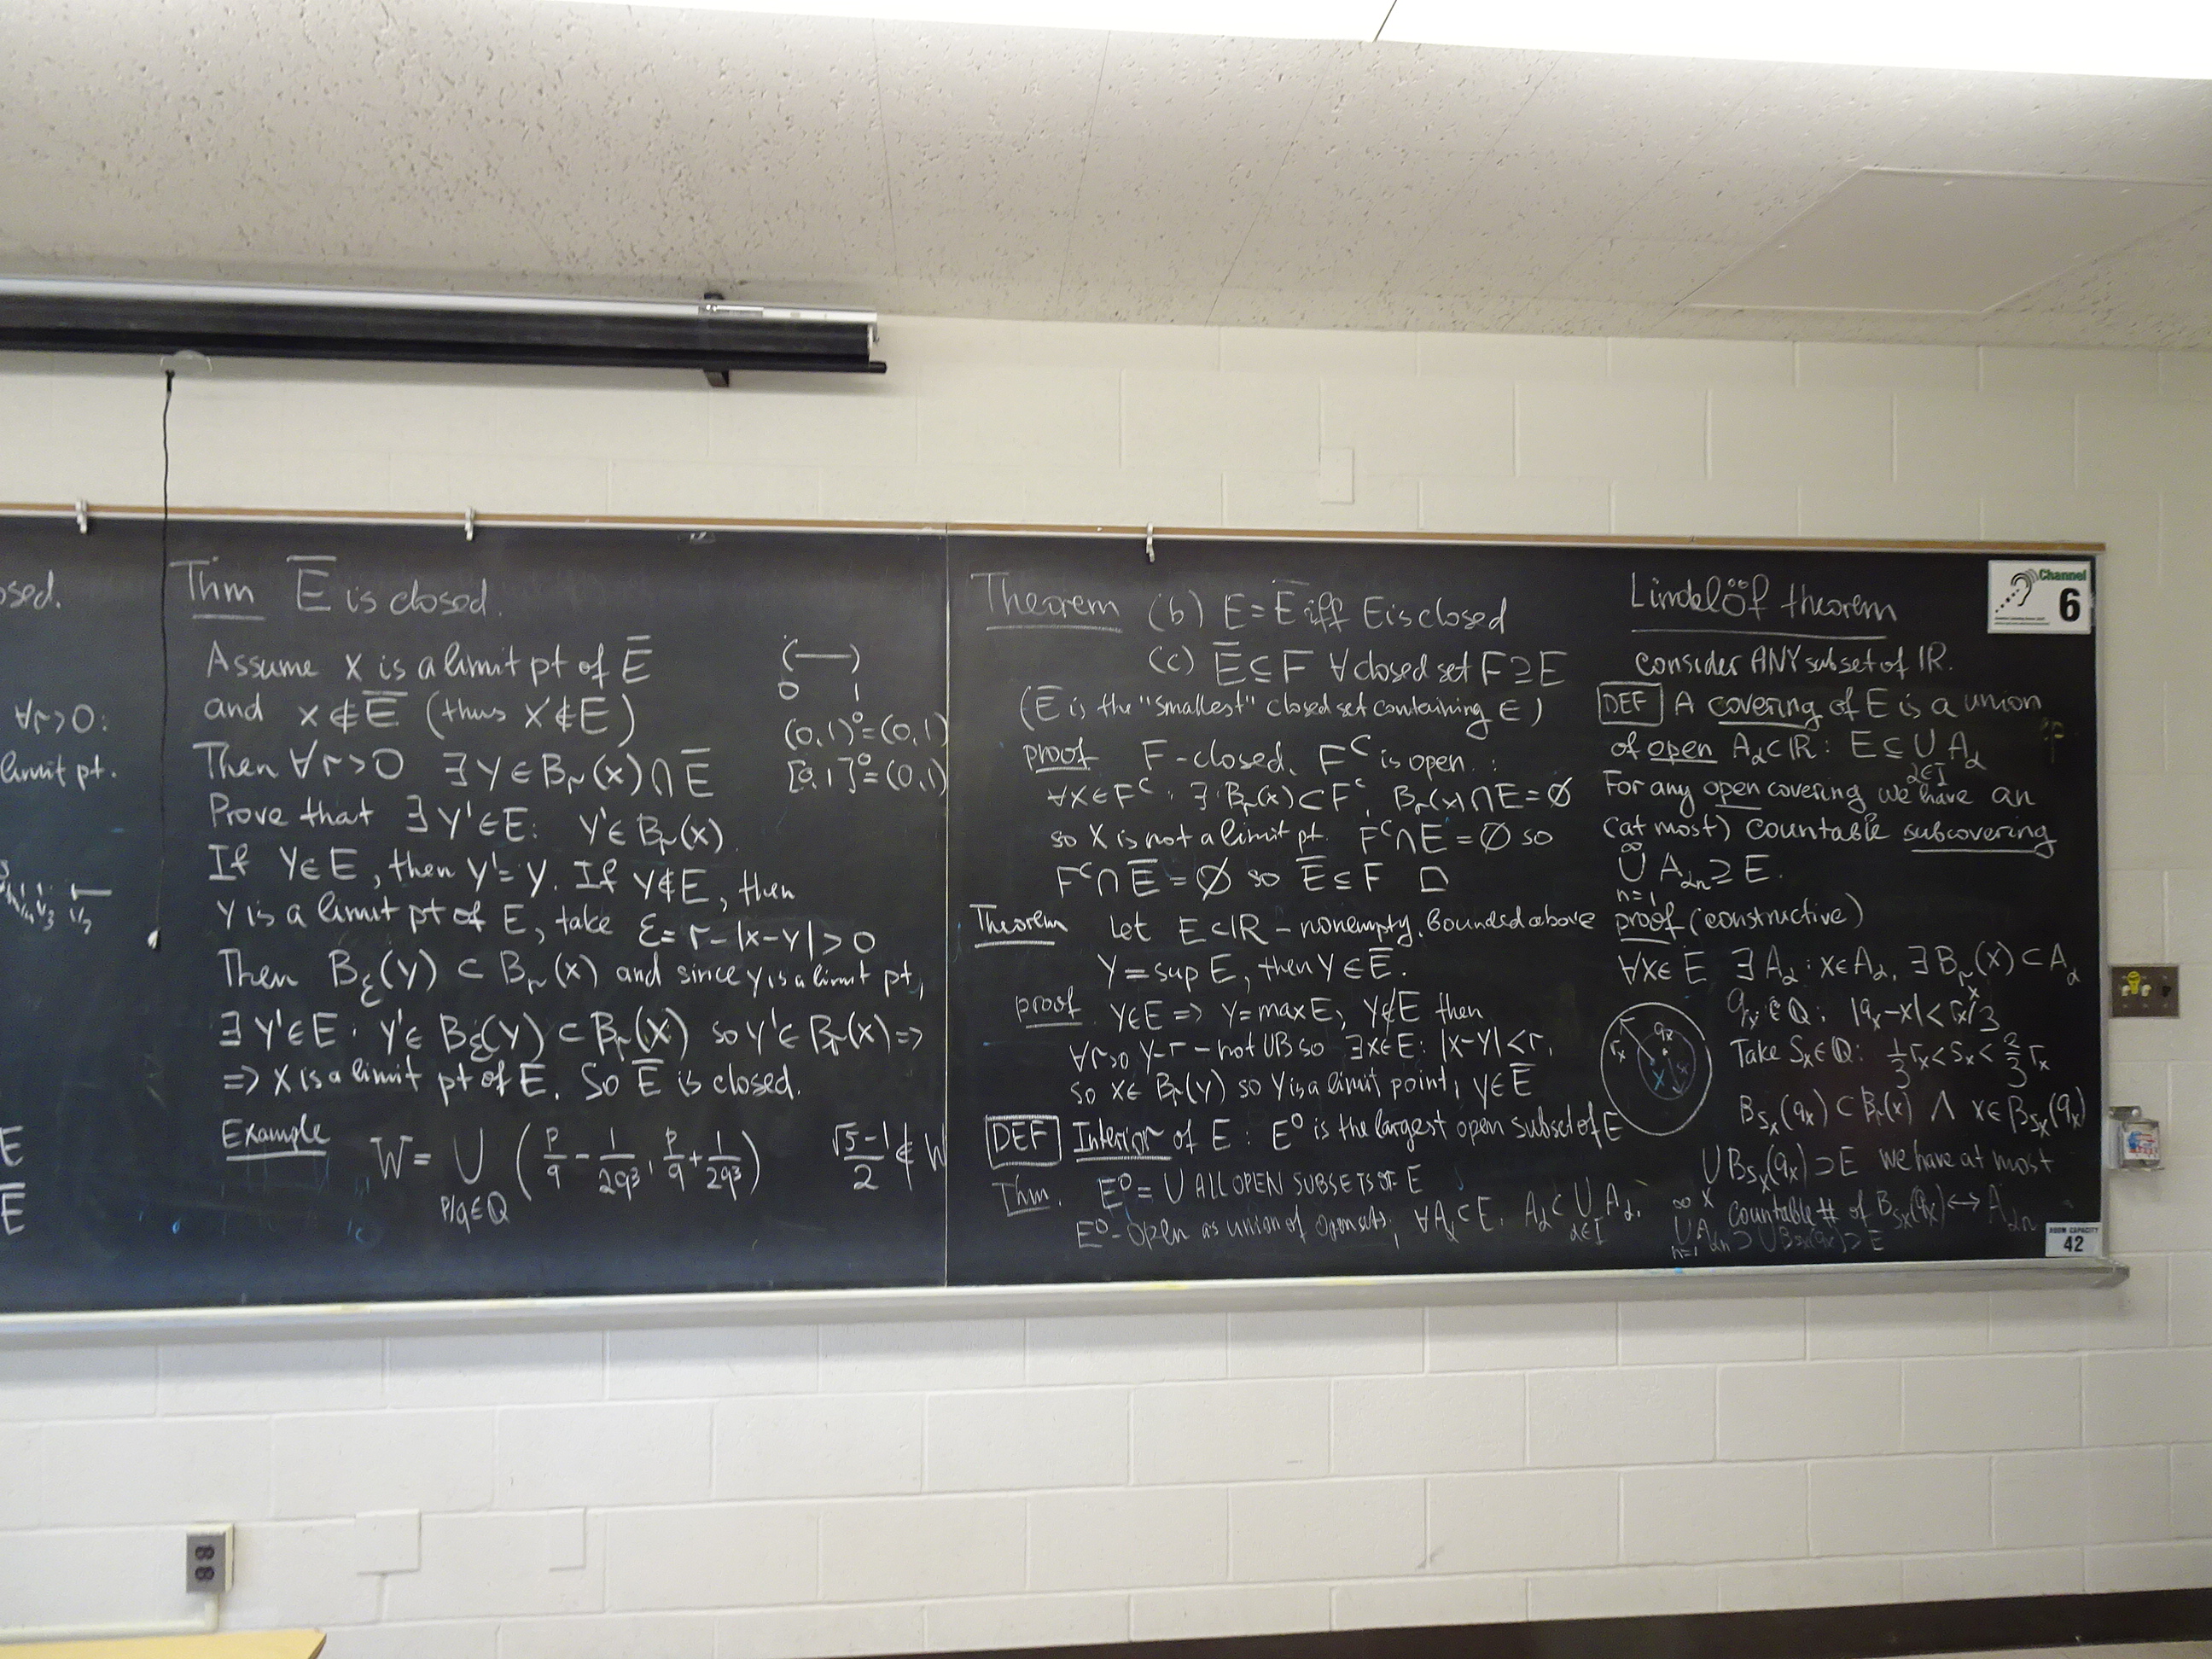 osed.
∀r>0:
limit pt.
E
E̅
Thm E̅ is closed.
Assume x is a limit pt of E̅
and x∉E̅ (thus x∉E)
Then ∀r>0 ∃y∈Bᵣ(x)∩E̅
Prove that ∃y'∈E: y'∈Bᵣ(x).
If y∈E, then y'=y. If y∉E, then
y is a limit pt of E, take ε=r-|x-y|>0
Then B_ε(y) ⊂ Bᵣ(x) and since y is a limit pt,
∃y'∈E: y'∈B_ε(y) ⊂ Bᵣ(x) so y'∈Bᵣ(x) =>
=> x is a limit pt of E. So E̅ is closed.
(—)
0 1
(0,1)⁰=(0,1)
[0,1]⁰=(0,1)
Example W= ∪_{p/q∈Q} (p/q - 1/2q³, p/q + 1/2q³) (√5-1)/2 ∉ W
Theorem (b) E=E̅ iff E is closed
(c) E̅⊆F ∀closed set F⊇E
(E̅ is the "smallest" closed set containing E)
proof F-closed, Fᶜ is open :
∀x∈Fᶜ : ∃ Bᵣ(x)⊂Fᶜ, Bᵣ(x)∩E=∅
so x is not a limit pt. Fᶜ∩E=∅ so
Fᶜ∩E̅=∅ so E̅⊆F □
Theorem Let E⊂IR - nonempty, Bounded above
y=sup E, then y∈E̅.
proof y∈E => y=max E, y∉E then
∀r>0 y-r - not UB so ∃x∈E: |x-y|<r,
so x∈Bᵣ(y) so y is a limit point, y∈E̅
DEF Interior of E : E⁰ is the largest open subset of E
Thm. E⁰ = ∪ ALL OPEN SUBSETS OF E
E⁰-open as union of open sets, ∀A_α⊂E, A_α⊂ ∪_{α∈I} A_α.
Lindelöf theorem
consider ANY subset of IR.
DEF A covering of E is a union
of open A_α⊂IR: E⊆ ∪_{α∈I} A_α
For any open covering we have an
(at most) countable subcovering
∪_{n=1}^∞ A_{αn} ⊇ E.
proof (constructive)
∀x∈E ∃A_α: x∈A_α, ∃B_{rₓ}(x)⊂A_α
qₓ∈Q: |qₓ-x|<rₓ/3
Take Sₓ∈Q: 1/3 rₓ<Sₓ<2/3 rₓ
rₓ
qₓ
x
B_{Sₓ}(qₓ)⊂Bᵣ(x) ∧ x∈B_{Sₓ}(qₓ)
∪_x B_{Sₓ}(qₓ)⊃E we have at most
countable # of B_{Sₓ}(qₓ)↔A_{αn}
∪_{n=1}^∞ A_{αn} ⊃ ∪B_{Sₓ}(qₓ)⊃E
Channel
6
ROOM CAPACITY
42